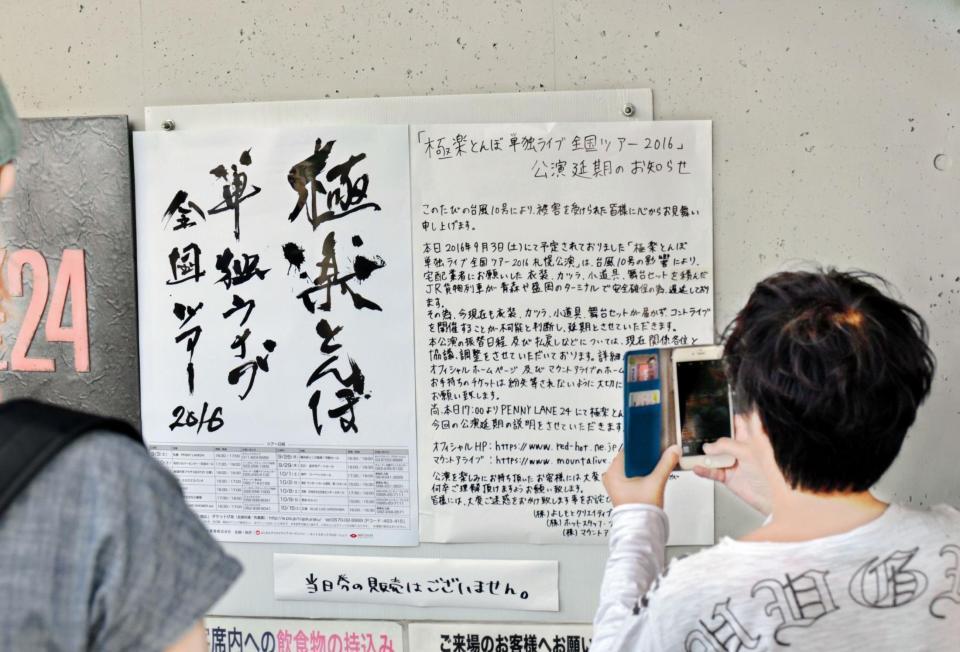 24
極楽とんぼ
単独ライブ
全国ツアー
2016
「極楽とんぼ 単独ライブ 全国ツアー 2016」
公演延期のお知らせ
このたびの台風10号により、被害を受けられた皆様に心からお見舞い
申し上げます。
本日 2016年9月3日(土)にて予定されておりました「極楽とんぼ
単独ライブ 全国ツアー2016 札幌公演」は、台風10号の影響により、
宅配業者にお願いした 衣装、カツラ、小道具、舞台セットを積んだ
JR貨物列車が 青森や盛岡のターミナルで安全確保の為、遅延してお
ます。
その為、今現在も衣装、カツラ、小道具、舞台セットが届かず、コントライブ
を開催することが不可能と判断し、延期とさせていただきます。
本公演の振替日程 及び払戻しなどについては、現在 関係各位と
協議、調整をさせていただいております。詳細
オフィシャルホームページ 及び マウントアライブのホーム
お手持ちのチケットは 紛失等されないように大切に
お願い致します。
尚、本日17:00より PENNY LANE 24 にて極楽とん
今回の公演延期の説明をさせていただ
オフィシャルHP: https://www.red-hot.ne.jp/
マウントアライブ: https://www.mountalive
公演を楽しみにお待ち頂いたお客様には大変
何卒ご理解頂けますようお願い致します。
皆様には、大変ご迷惑をおかけ致します事をお詫び
(株)よしもとクリエイティブ
(株)ホットスタッフ・
(株)マウントア
当日券の販売はございません。
席内への飲食物の持込み
ご来場のお客様へお願い